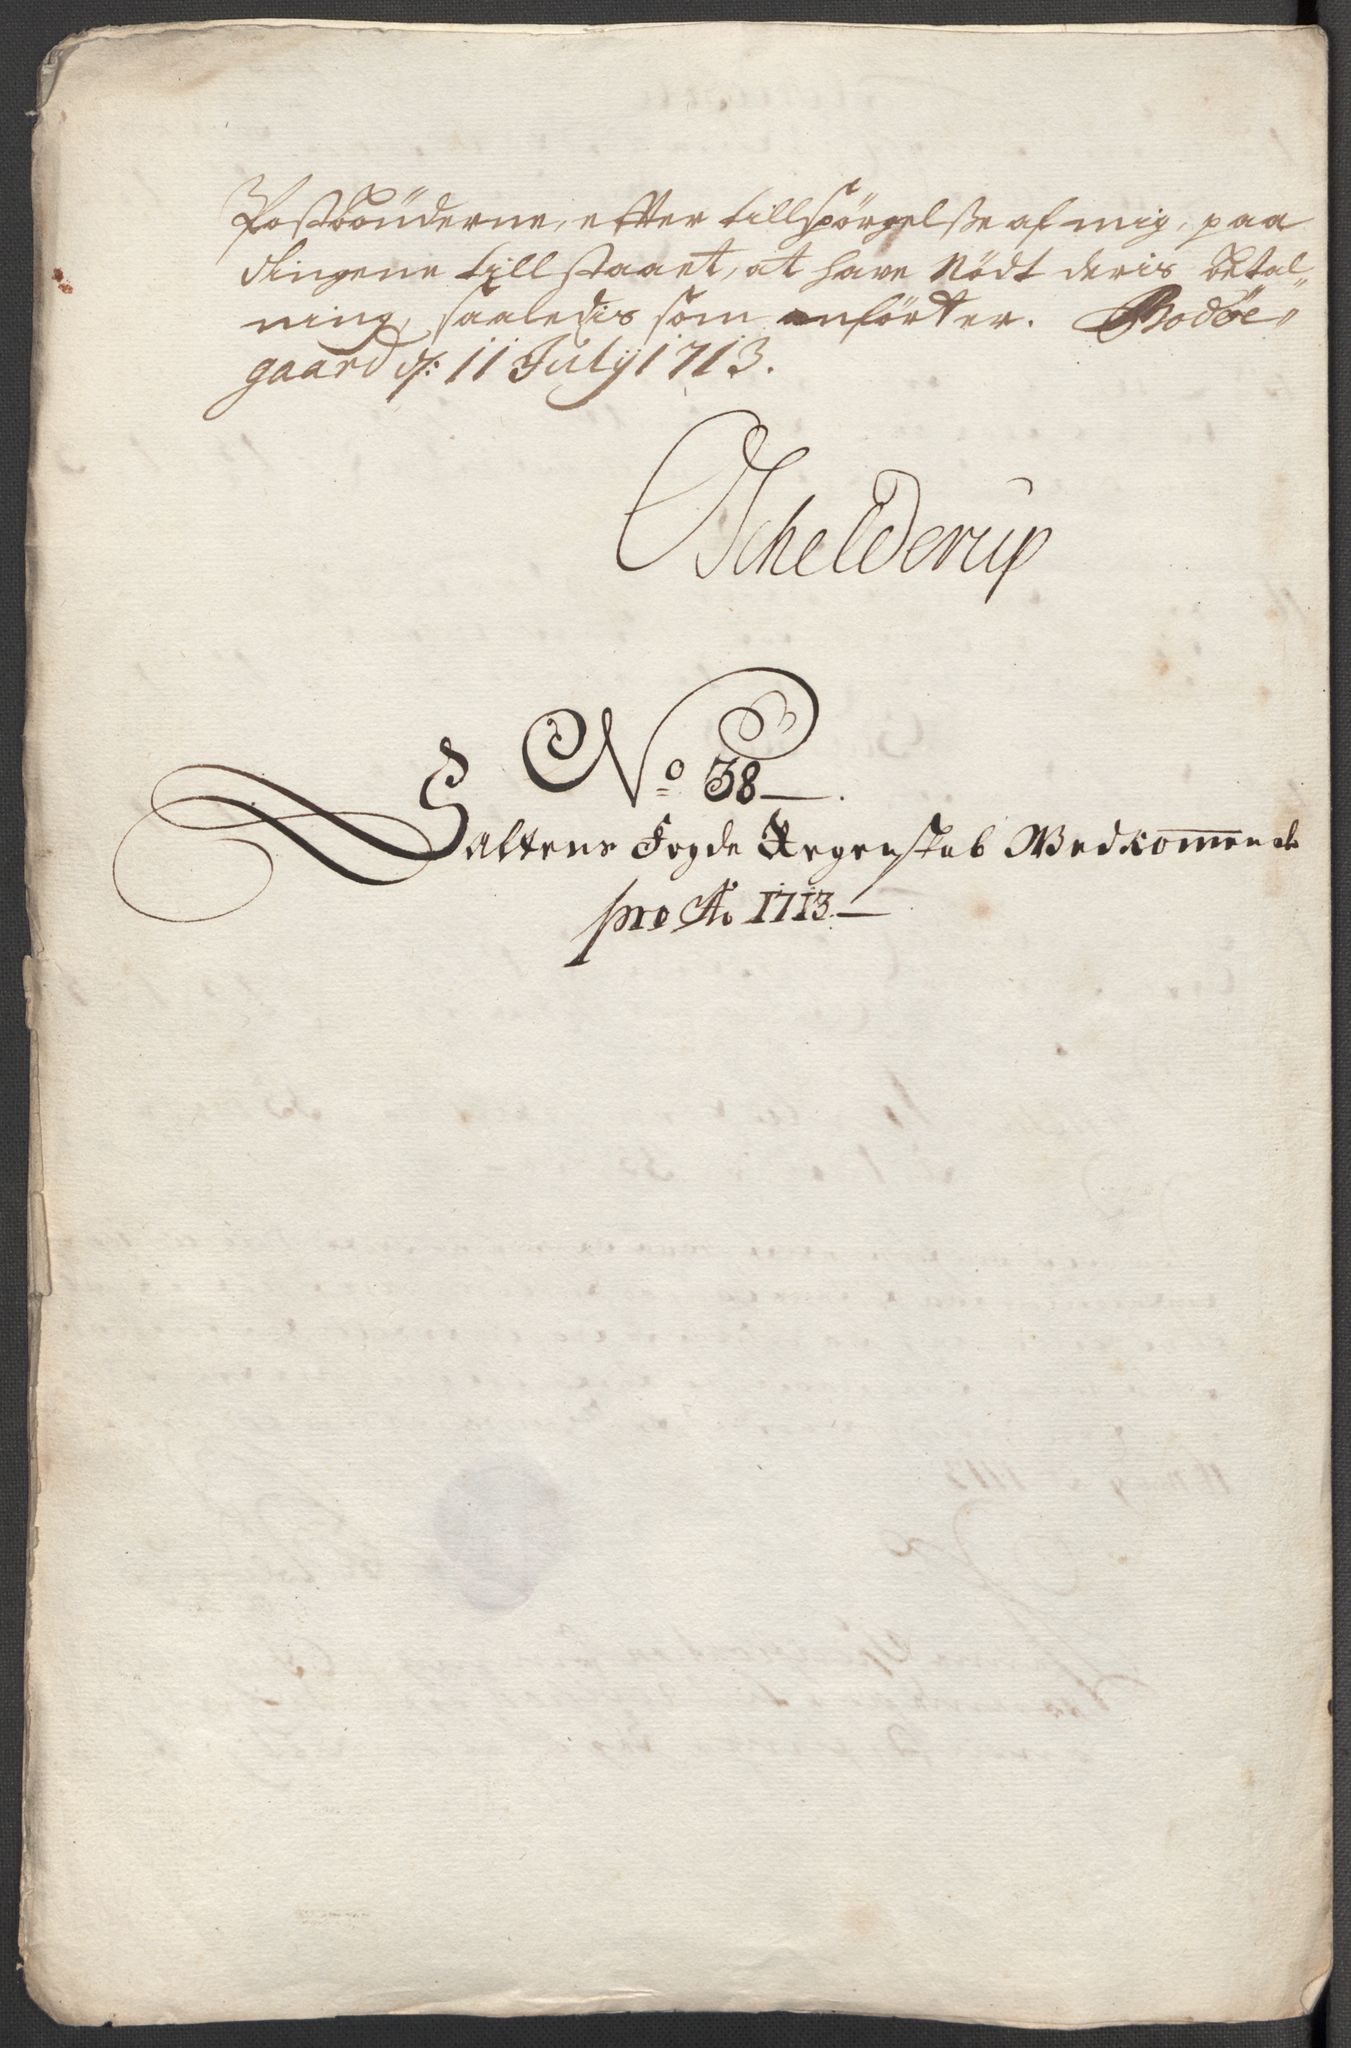 Postbönderne, efter tillspörgelse af mig, paa
tingene tillstaaet, at have Nödt deris betal„
ning, saaledis som anfördt er. Bodöe„
gaard d: 11 July 1713.
Schelderup
No 38
Saltens Fogde Regenskab Vedkommende
pro Ao 1713